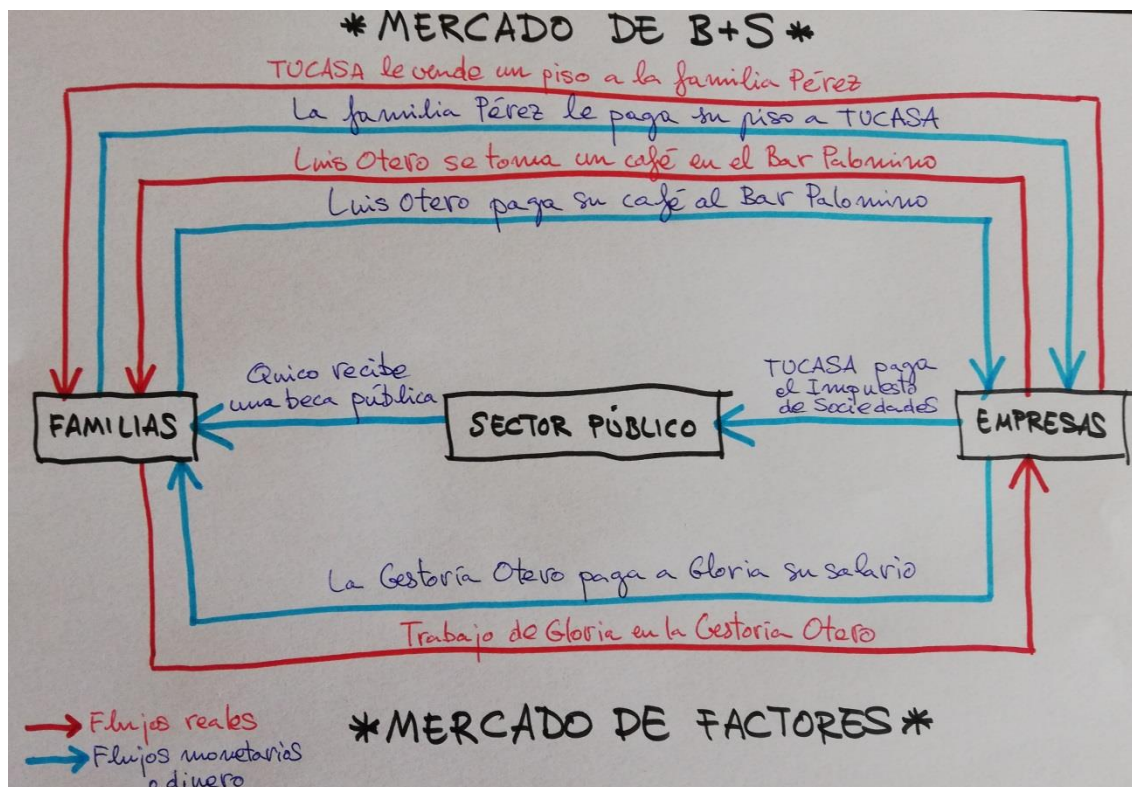 *MERCADO DE B+S*
TUCASA le vende un piso a la familia Pérez
La familia Pérez le paga su piso a TUCASA
Luis Otero se toma un café en el Bar Palomino
Luis Otero paga su café al Bar Palomino
Quico recibe
una beca pública
TUCASA paga
el Impuesto
de Sociedades
FAMILIAS
SECTOR PÚBLICO
EMPRESAS
La Gestoría Otero paga a Gloria su salario
Trabajo de Gloria en la Gestoría Otero
Flujos reales
*MERCADO DE FACTORES*
Flujos monetarios
o dinero